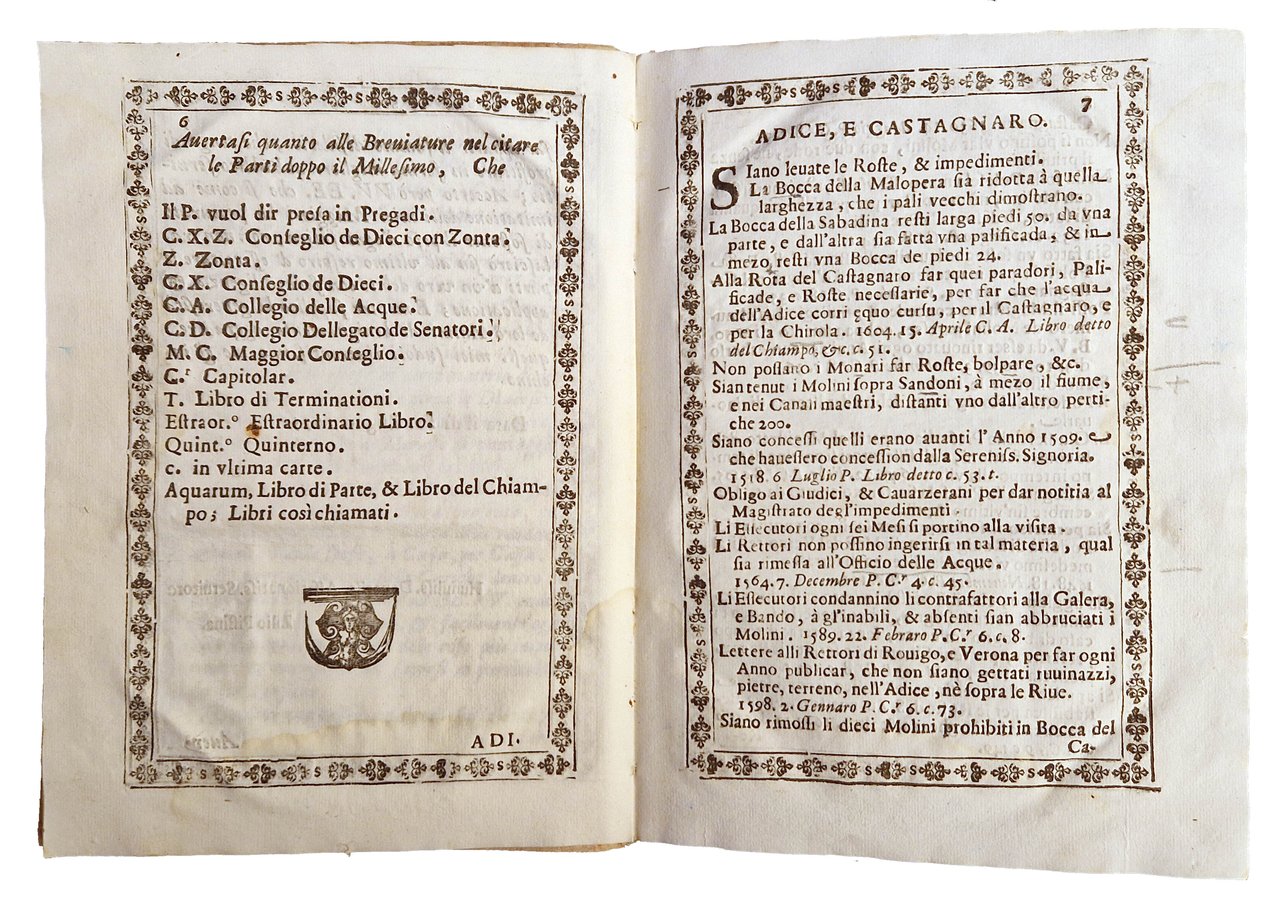 6
Auertasi quanto alle Breuiature nel citare
le Parti doppo il Millesimo, Che
Il P. vuol dir presa in Pregadi.
C. X. Z. Conseglio de Dieci con Zonta.
Z. Zonta.
C. X. Conseglio de Dieci.
C. A. Collegio delle Acque.
C. D. Collegio Dellegato de Senatori.
M. C. Maggior Conseglio.
C.r Capitolar.
T. Libro di Terminationi.
Estraor.o Estraordinario Libro.
Quint.o Quinterno.
c. in vltima carte.
Aquarum, Libro di Parte, & Libro del Chiam-
po; Libri così chiamati.
ADI.
7
ADICE, E CASTAGNARO.
SIano leuate le Roste, & impedimenti.
La Bocca della Malopera sia ridotta à quella
larghezza, che i pali vecchi dimostrano.
La Bocca della Sabadina resti larga piedi 50. da vna
parte, e dall'altra sia fatta vna palificada, & in
mezo, resti vna Bocca de piedi 24.
Alla Rota del Castagnaro far quei paradori, Pali-
ficade, e Roste necessarie, per far che l'acqua
dell'Adice corri equo cursu, per il Castagnaro, e
per la Chirola. 1604. 15. Aprile C. A. Libro detto
del Chiampo, &c. c. 51.
Non possano i Monari far Roste, bolpare, &c.
Sian tenut i Molini sopra Sandoni, à mezo il fiume,
e nei Canali maestri, distanti vno dall'altro perti-
che 200.
Siano concessi quelli erano auanti l'Anno 1509. e
che hauessero concession dalla Sereniss. Signoria.
1518. 6 Luglio P. Libro detto c. 53. t.
Obligo ai Giudici, & Cauarzerani per dar notitia al
Magistrato degl'impedimenti.
Li Essecutori ogni sei Mesi si portino alla visita.
Li Rettori non possino ingerirsi in tal materia, qual
sia rimessa all'Officio delle Acque.
1564. 7. Decembre P. C.r 4. c. 45.
Li Essecutori condannino li contrafattori alla Galera,
e Bando, à gl'inabili, & absenti sian abbruciati i
Molini. 1589. 22. Febraro P. C.r 6. c. 8.
Lettere alli Rettori di Rouigo, e Verona per far ogni
Anno publicar, che non siano gettati ruuinazzi,
pietre, terreno, nell'Adice, nè sopra le Riue.
1598. 2. Gennaro P. C.r 6. c. 73.
Siano rimossi li dieci Molini prohibiti in Bocca del
Ca-